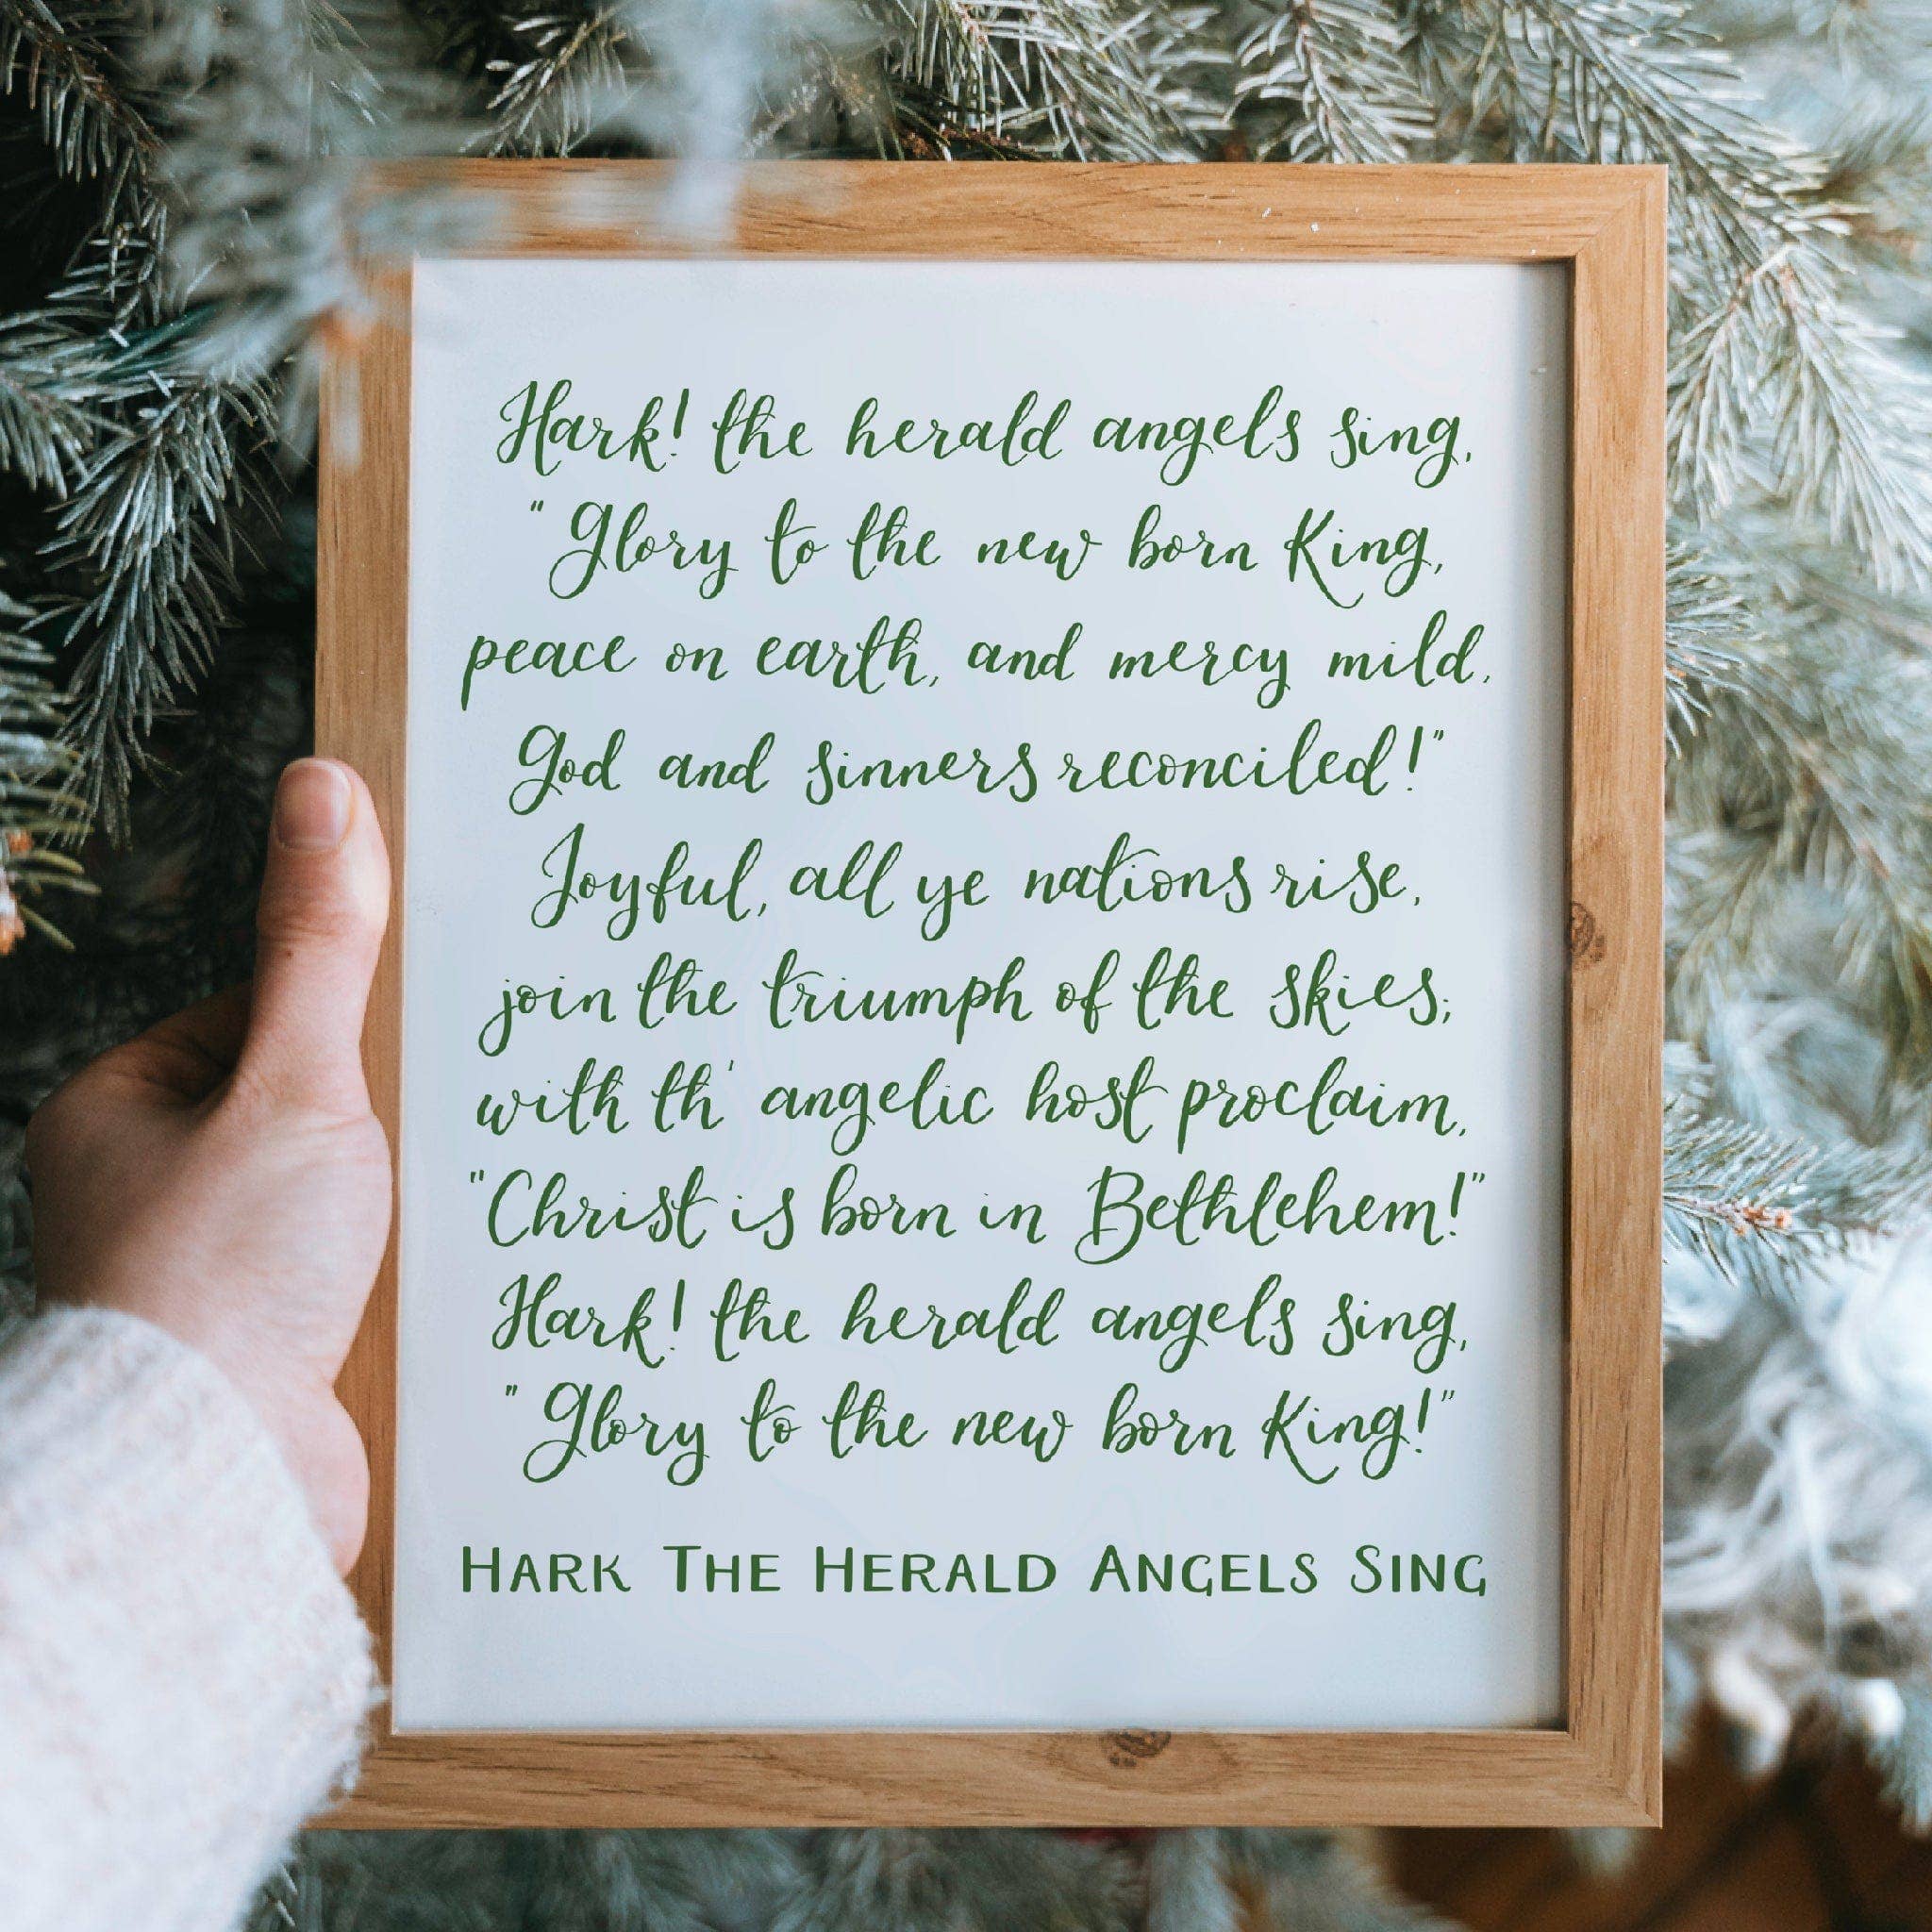 Hark! the herald angels sing,
"Glory to the new born King,
peace on earth, and mercy mild,
God and sinners reconciled!"
Joyful, all ye nations rise,
join the triumph of the skies;
with th' angelic host proclaim,
"Christ is born in Bethlehem!"
Hark! the herald angels sing,
"Glory to the new born King!"
HARK THE HERALD ANGELS SING